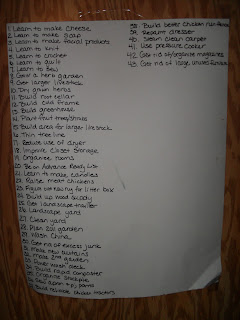 1. Learn to make cheese
2. Learn to make soap
3. Learn to make facial products
4. Learn to knit
5. Learn to crochet
6. Learn to quilt
7. Learn to sew
8. Grow a herb garden
9. Get larger livestock
10. Dry gain herbs
11. Build root cellar
12. Build cold frame
13. Build greenhouse
14. Plant fruit trees/
15. Build area for larger livestock
16. Thin tree line
17. Reduce use of dryer
18. Improve Closet Storage
19. Organize rooms
20. Be on Advance Ready List
21. Learn to make candles
22. Raise meat chickens
23. Figure out for litter box
24. Build up food supply
25. Get landscape trailer
26. Landscape yard
27. Clean yard
28. Plan 2011 garden
29. Wash China
30. Get rid of excess junk
31. Make new curtains
32. 2nd garden
33. wash deck
34. Build rapid composter
35. Organize stockpile
36. Seal
37. Build chicken tractors
38. Build better chicken run
39. Repaint dresser
40. Steam Clean carpet
41. Use pressure cooker
42. Get rid of/organize magazines
43. Get rid of large, unused